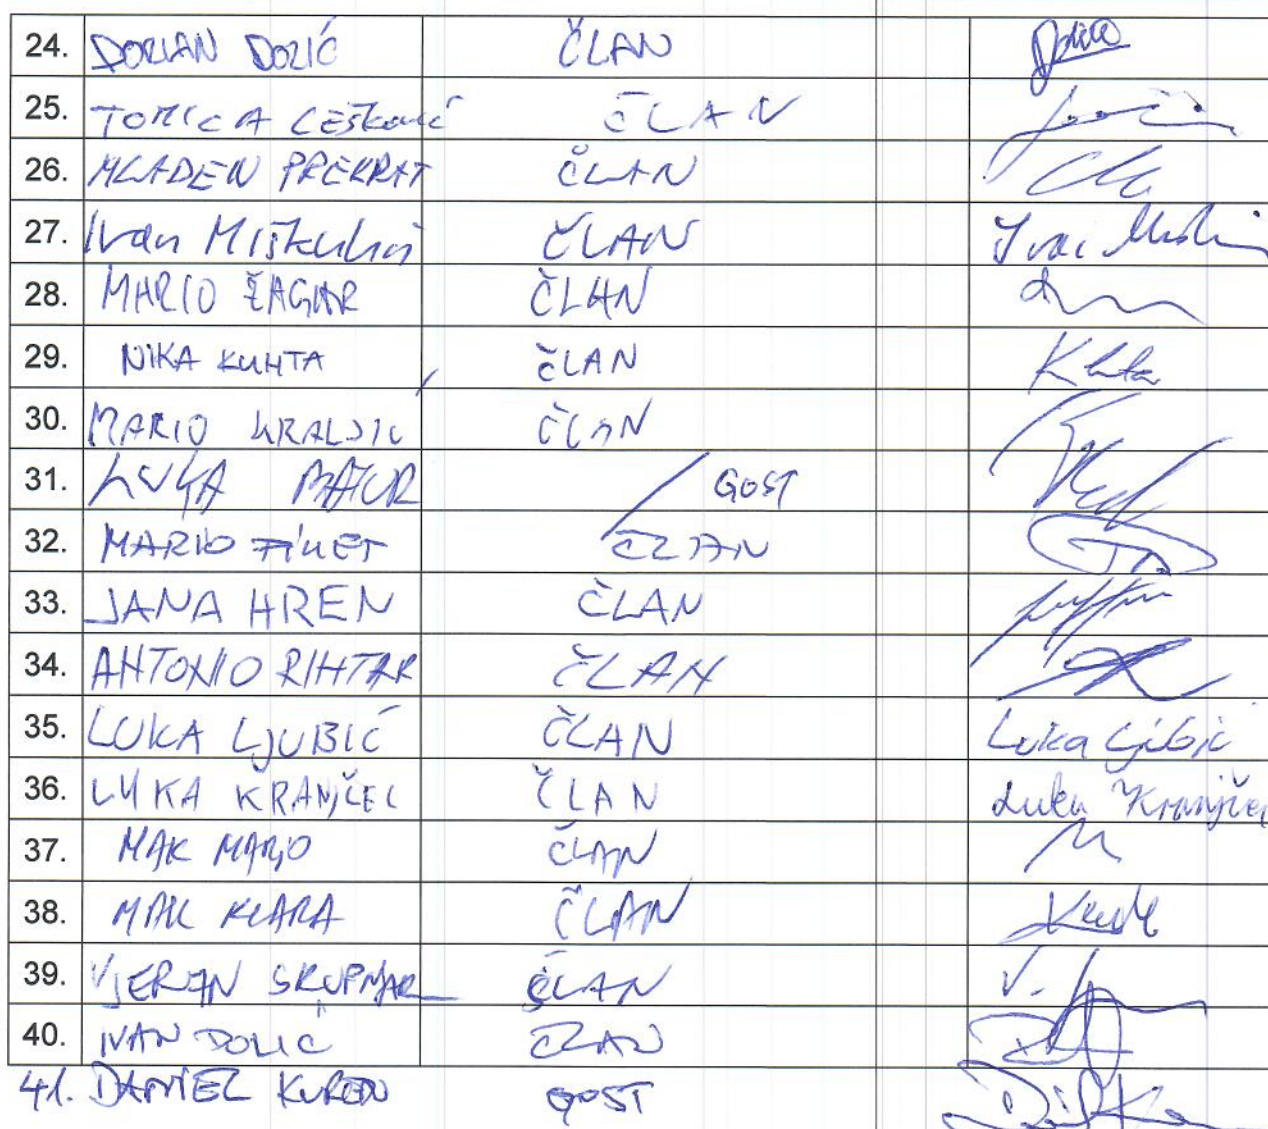 24. DORIAN DOLIĆ ČLAN
25. TOMICA CEŠKOVIĆ ČLAN
26. MLADEN PREKRAT ČLAN
27. Ivan Miškulin ČLAN Ivan
28. MARIO ŽAGAR ČLAN
29. NIKA KUHTA ČLAN Kuhta
30. MARIO KRALJIĆ ČLAN
31. LUKA BATUR GOST
32. MARIO ČLAN
33. JANA HREN ČLAN
34. ANTONIO RIHTAR ČLAN
35. LUKA LJUBIĆ ČLAN Luka Ljubić
36. LUKA KRANJČEC ČLAN Luka Kranjčec
37. MAK MARIO ČLAN
38. MAK KLARA ČLAN
39. VJERAN SKUPNJAK ČLAN
40. IVAN DOLIĆ ČLAN
41. DANIEL KUREN GOST